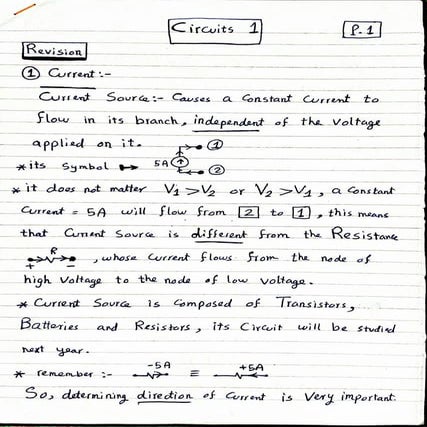 Circuits 1
P.1
Revision
① Current :-
Current Source:- Causes a Constant Current to
flow in its branch, independent of the Voltage
applied on it.
①
* its Symbol 5A
②
* it does not matter V1 > V2 or V2 > V1, a constant
Current = 5A will flow from 2 to 1, this means
that Current Source is different from the Resistance
R
+ -, whose current flows from the node of
high Voltage to the node of low voltage.
* Current Source is composed of Transistors,
Batteries and Resistors, its Circuit will be studied
next year.
* remember :- -5A ≡ +5A
So, determining direction of Current is Very important.